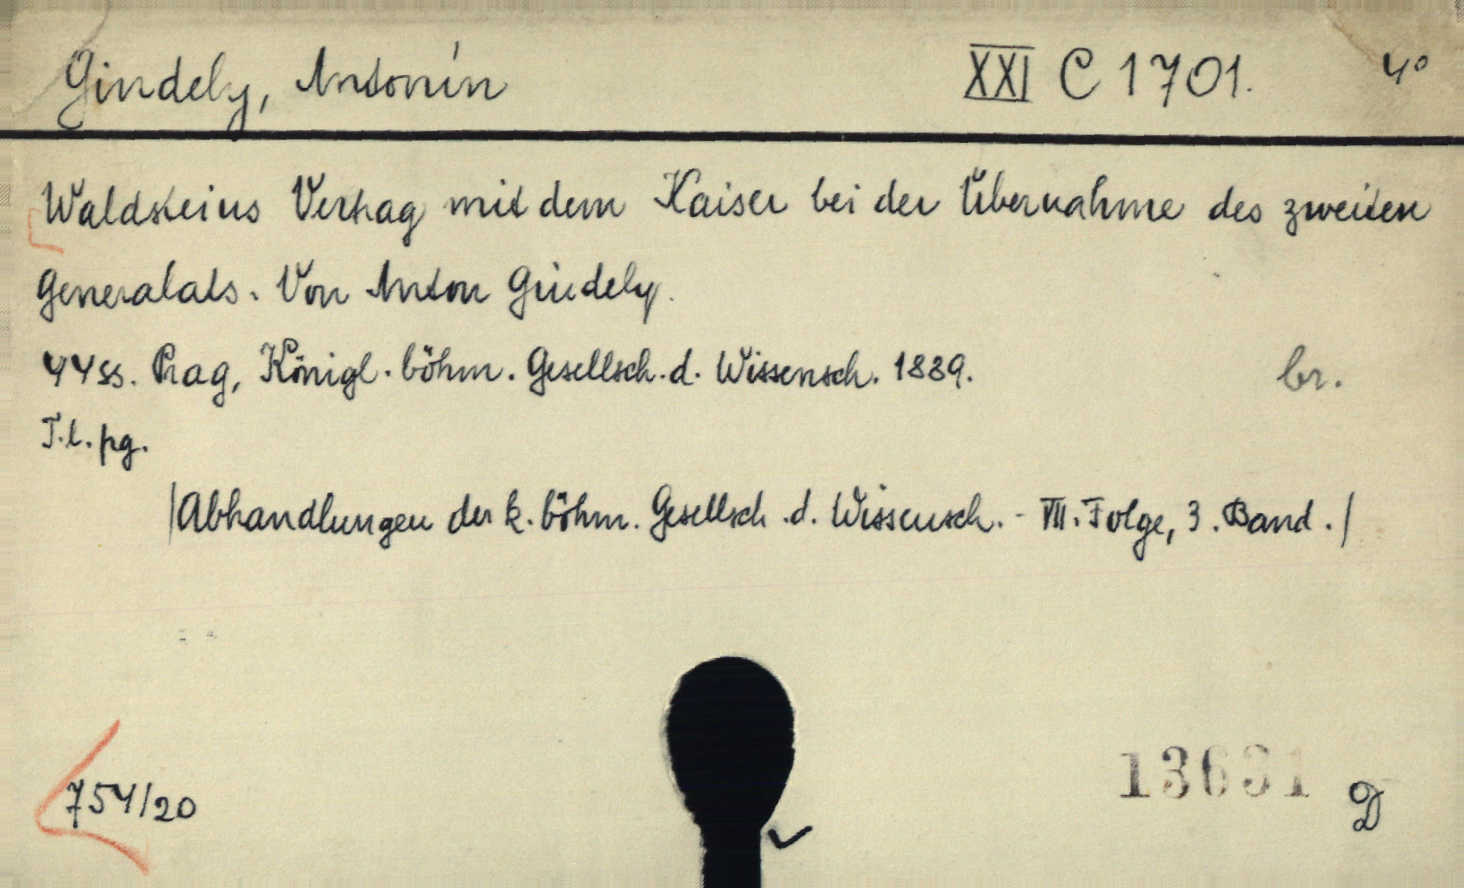 Gindely, Antonín XXI C 1701. 4°
Waldsteins Vertrag mit dem Kaiser bei der Übernahme des zweiten
Generalats. Von Anton Gindely.
44 ss. Prag, Königl. böhm. Gesellsch. d. Wissensch. 1889. br.
T. l. pg.
/Abhandlungen der k. böhm. Gesellsch. d. Wissensch. - VII. Folge, 3. Band./
754/20
13631 D